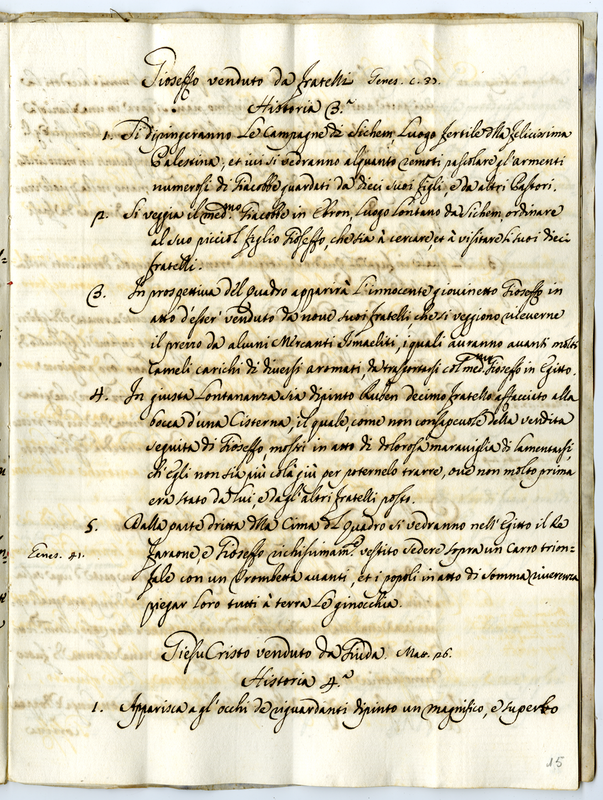 Gioseffo venduto da fratelli Genes. c. 37.
Historia 3.ª
1. Si dipingeranno Le Campagne di Sichem, Luogo fertile della felicissima
Palestina, et ivi si vedranno alquanto remoti pascolare gl'armenti
numerosi di Giacobbe guardati da dieci suoi figli, e da altri Pastori.
2. Si veggia il med.mo Giacobbe in Ebron, Luogo Lontano da Sichem, ordinare
al suo picciol figlio Gioseffo, che sia à cercare, et à visitare li suoi dieci
fratelli.
3. In prospettiva del quadro apparirà L'innocente giovinetto Gioseffo in
atto d'esser venduto da nove suoi fratelli, che si veggiono riceverne
il prezzo da alcuni Mercanti Ismaeliti, i quali avranno avanti molti
Cameli carichi di diversi aromati, da trasportarsi col med.mo Gioseffo in Egitto.
4. In giusta Lontananza sia dipinto Ruben decimo fratello affacciato alla
bocca d'una Cisterna, il quale, come non consapevole della vendita
seguita di Gioseffo mostri in atto di dolorosa maraviglia di lamentarsi,
ch'Egli non sia più colà giù per poternelo trarre, ove non molto prima
era stato da lui, e dagl'altri fratelli posto.
5. Dalla parte dritta della Cima del Quadro si vedranno nell'Egitto il Re
Genes. 41.
Faraone, e Gioseffo richissimam.te vestito sedere sopra un Carro trion=
fale con un Trombetta avanti, et i popoli in atto di somma riverenza
piegar Loro tutti à terra Le ginocchia.
Giesu Cristo venduto da Giuda. Matt. 26.
Historia 4.ª
1. Apparisca a gl'occhi de riguardanti dipinto un magnifico, e superbo
15